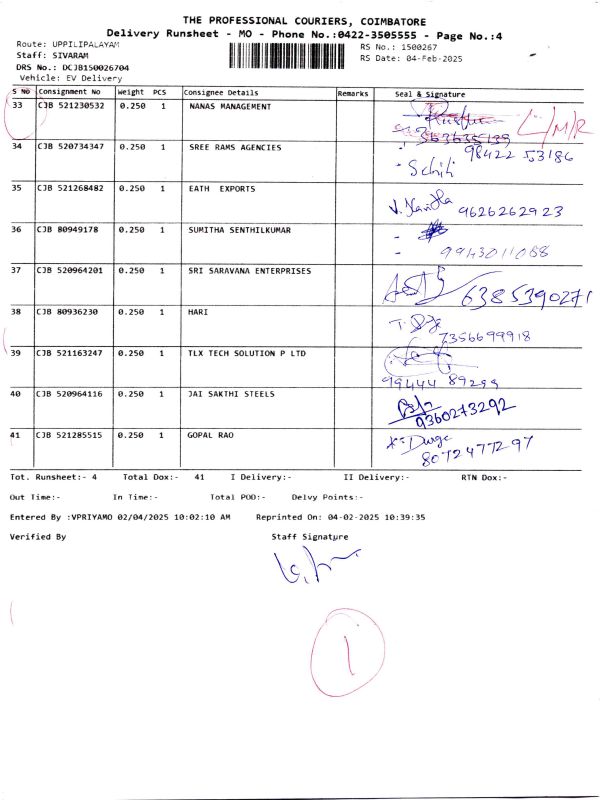 THE PROFESSIONAL COURIERS, COIMBATORE
Delivery Runsheet - MO - Phone No.:0422-3505555 - Page No.:4
Route: UPPILIPALAYAM
RS No.: 1500267
Staff: SIVARAM
RS Date: 04-Feb-2025
DRS No.: DCJB150026704
Vehicle: EV Delivery
S No Consignment No Weight PCS Consignee Details Remarks Seal & Signature
33 CJB 521230532 0.250 1 NANAS MANAGEMENT L/M/R
34 CJB 520734347 0.250 1 SREE RAMS AGENCIES 98422 53186
35 CJB 521268482 0.250 1 EATH EXPORTS V. Nandha 9626262923
36 CJB 80949178 0.250 1 SUMITHA SENTHILKUMAR 9943011088
37 CJB 520964201 0.250 1 SRI SARAVANA ENTERPRISES 6385390271
38 CJB 80936230 0.250 1 HARI 7356699918
39 CJB 521163247 0.250 1 TLX TECH SOLUTION P LTD 99444 89299
40 CJB 520964116 0.250 1 JAI SAKTHI STEELS 9360273292
41 CJB 521285515 0.250 1 GOPAL RAO 8072477297
Tot. Runsheet:- 4 Total Dox:- 41 I Delivery:- II Delivery:- RTN Dox:-
Out Time:- In Time:- Total POD:- Delvy Points:-
Entered By :VPRIYAMO 02/04/2025 10:02:10 AM Reprinted On: 04-02-2025 10:39:35
Verified By Staff Signature
1